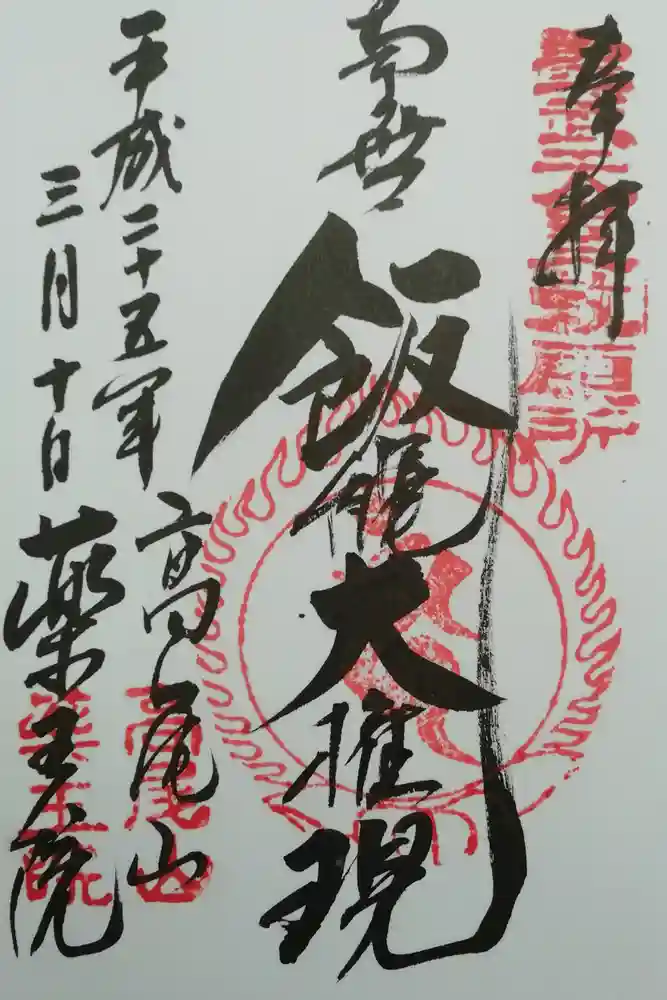 奉拝
南無
飯縄大権現
平成二十五年
三月十日
高尾山
薬王院
高尾山
薬王院